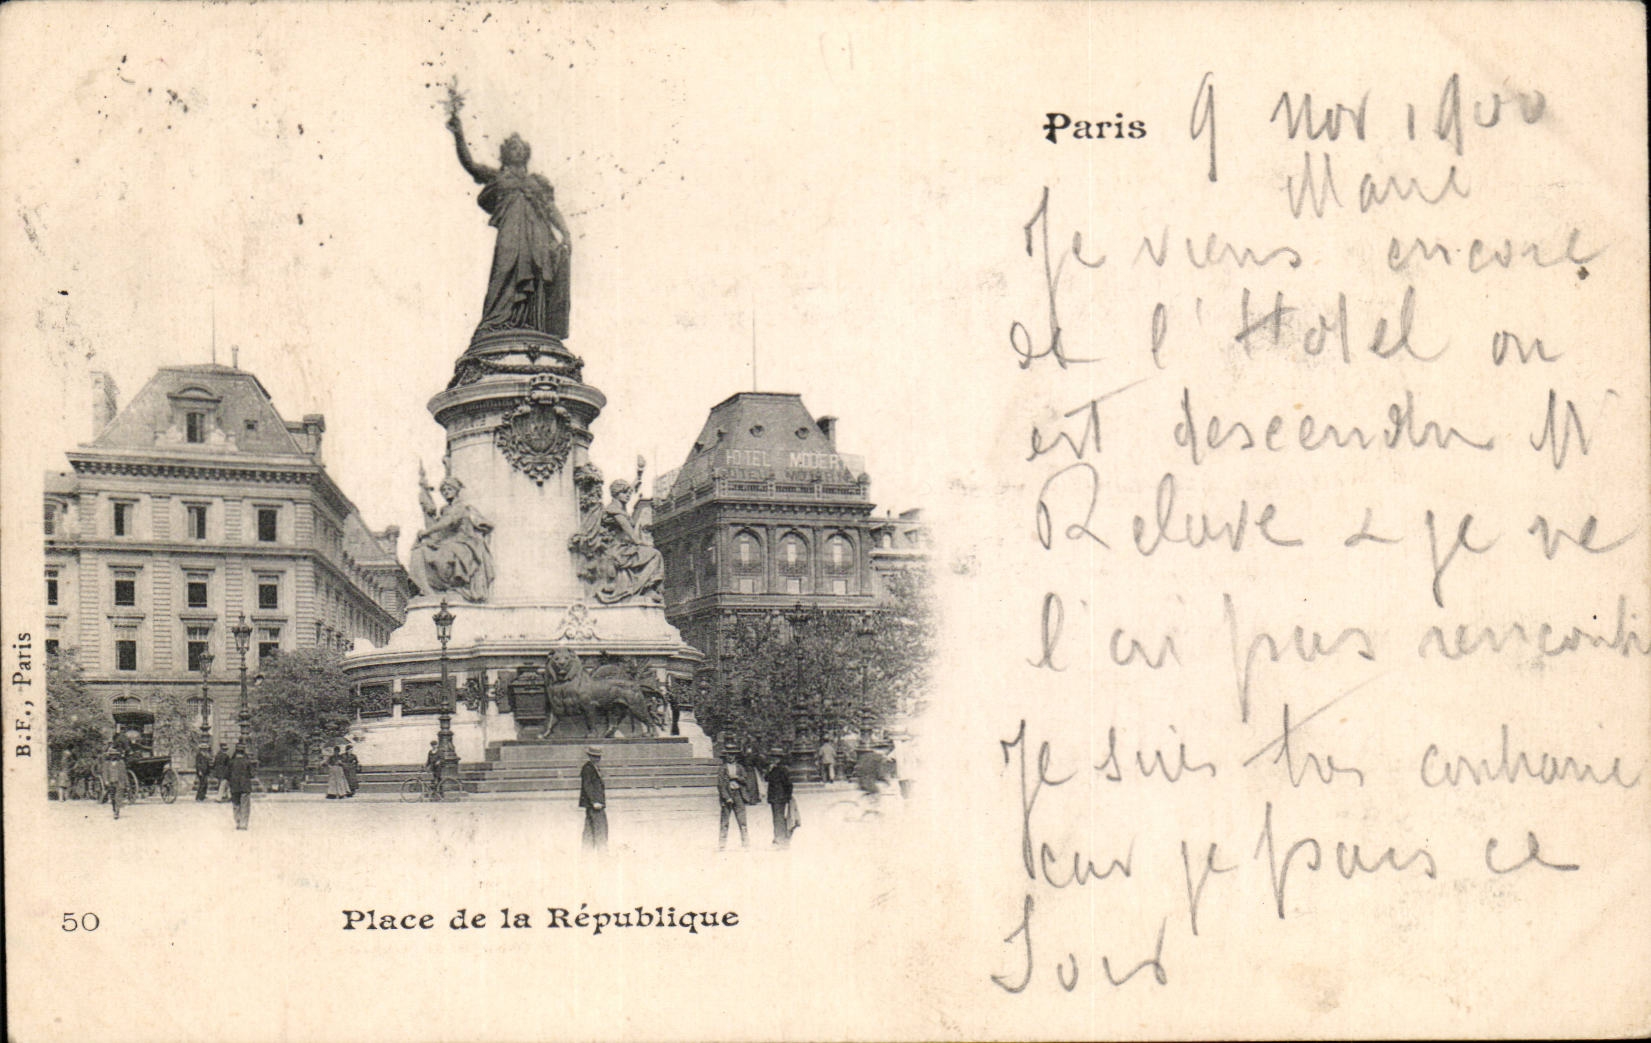 Paris 9 Nov 1900
Marie
Je viens encore
de l'Hotel on
est descendu Mr
Relave & je ne
l'ai pas rencontré
Je suis tres contrarié
car je pars ce
Soir
HOTEL MODERN
B.F., Paris
50 Place de la République